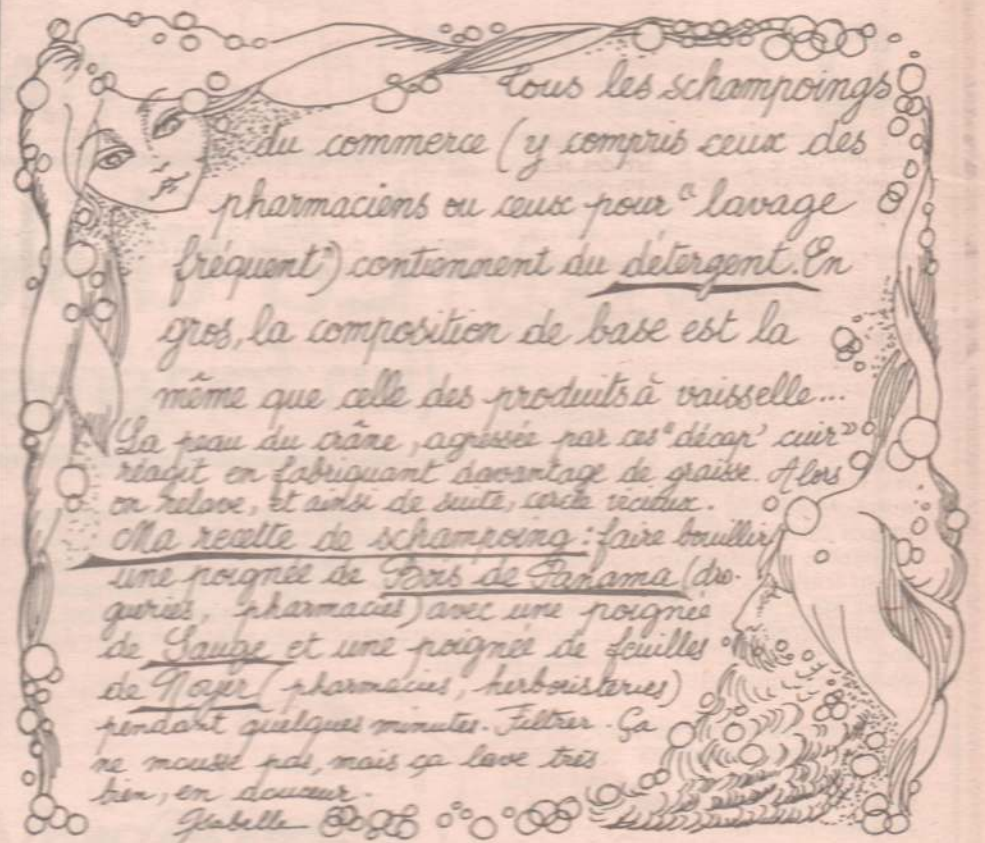 tous les schampoings
du commerce (y compris ceux des
pharmaciens ou ceux pour "lavage
fréquent") contiennent du détergent. En
gros, la composition de base est la
même que celle des produits à vaisselle...
La peau du crâne, agressée par ces "décap' cuir"
réagit en fabriquant davantage de graisse. Alors
on relave, et ainsi de suite, cercle vicieux.
Ma recette de schampoing : faire bouillir
une poignée de Bois de Panama (dro-
gueries, pharmacies) avec une poignée
de Sauge et une poignée de feuilles
de Noyer (pharmacies, herboristeries)
pendant quelques minutes. Filtrer. Ça
ne mousse pas, mais ça lave très
bien, en douceur.
Isabelle